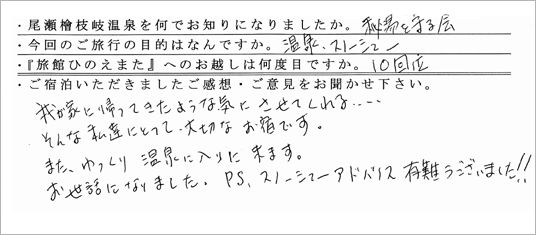 ・尾瀬檜枝岐温泉を何でお知りになりましたか。秘湯を守る会
・今回のご旅行の目的はなんですか。温泉、スノーシュー
・『旅館ひのえまた』へのお越しは何度目ですか。10回位
・ご宿泊いただきましたご感想・ご意見をお聞かせ下さい。
我が家に帰ってきたような気にさせてくれる・・・・
そんな私達にとって、大切なお宿です。
また、ゆっくり温泉に入りに来ます。
お世話になりました。PS、スノーシューアドバイス有難うございました!!